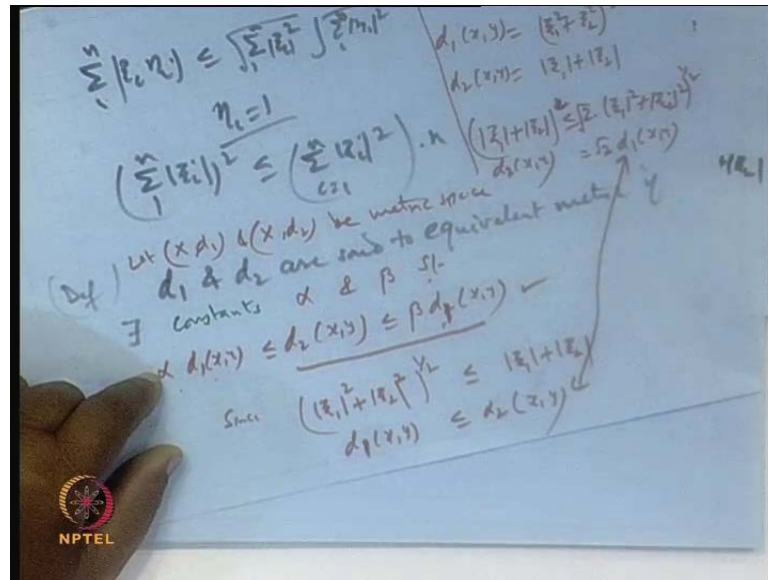 ∑₁ⁿ |ξᵢ ηᵢ| ≤ √(∑₁ⁿ |ξᵢ|²) √(∑₁ⁿ |ηᵢ|²)
ηᵢ = 1
(∑₁ⁿ |ξᵢ|)² ≤ (∑ᵢ₌₁ⁿ |ξᵢ|²) . n
d₁(x,y) = (ξ₁² + ξ₂²)
d₂(x,y) = |ξ₁| + |ξ₂|
(|ξ₁| + |ξ₂|) ≤ √2 . (|ξ₁|² + |ξ₂|²)^½
d₂(x,y) = √2 d₁(x,y)
+|ξ₂|
(Def) Let (X, d₁) & (X, d₂) be metric space
d₁ & d₂ are said to equivalent metric if
∃ constants α & β st.
α d₁(x,y) ≤ d₂(x,y) ≤ β d₁(x,y) ✓
Since (|ξ₁|² + |ξ₂|²)^½ ≤ |ξ₁| + |ξ₂|
d₁(x,y) ≤ d₂(x,y)
NPTEL